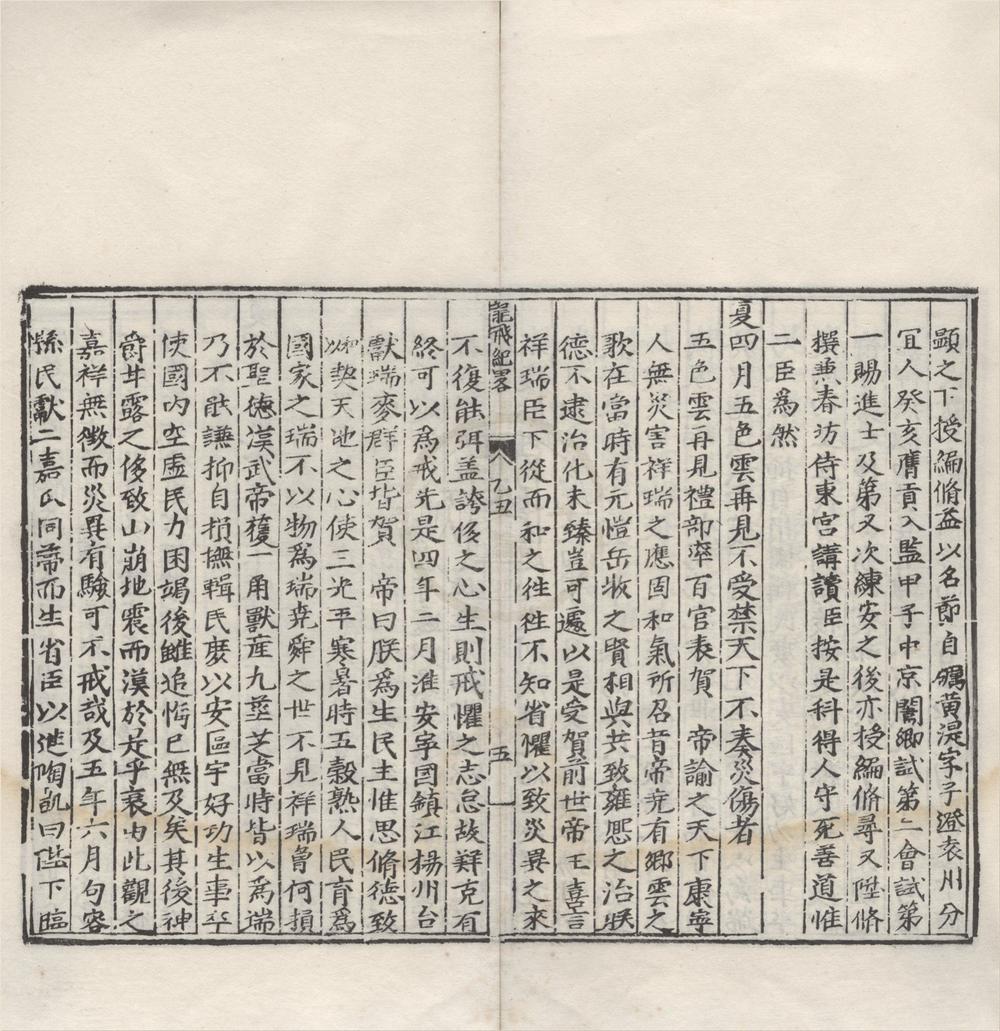 顯之下授編脩益以名節自礪黄湜字子澄袁州分
冝人癸亥膺貢入監甲子中京闈鄉試第二會試第
一賜進士及第又次練安之後亦授編脩尋又陞脩
撰兼春坊侍東宮講讀臣按是科得人守死善道惟
二臣為然
夏四月五色雲再見不受禁天下不奏災傷者
五色雲再見禮部率百官表賀　帝諭之天下康寧
人無災害祥瑞之應固和氣所召昔帝堯有卿雲之
歌在當時有元愷岳牧之賢相與共致雍熈之治朕
德不逮治化未臻豈可遽以是受賀前世帝王喜言
祥瑞臣下從而和之徃徃不知省懼以致災異之來
龍飛紀畧　乙丑　五
不復能弭盖誇侈之心生則戒懼之志怠故鮮克有
終可以為戒先是四年二月淮安寧國鎮江楊州台
獻瑞麥群臣皆賀　帝曰朕為生民主惟思脩德致
和以契天地之心使三光平寒暑時五穀熟人民育為
國家之瑞不以物為瑞堯舜之世不見祥瑞曾何損
於聖德漢武帝獲一角獸産九莖芝當時皆以為瑞
乃不能謙抑自損撫輯民庶以安區宇好功生事卒
使國内空虛民力困竭後雖追悔已無及矣其後神
爵甘露之侈致山崩地震而漢於是乎衰由此觀之
嘉祥無徴而災異有驗可不戒哉及五年六月句容
縣民獻二嘉瓜同蔕而生省臣以進陶凱曰陛下臨